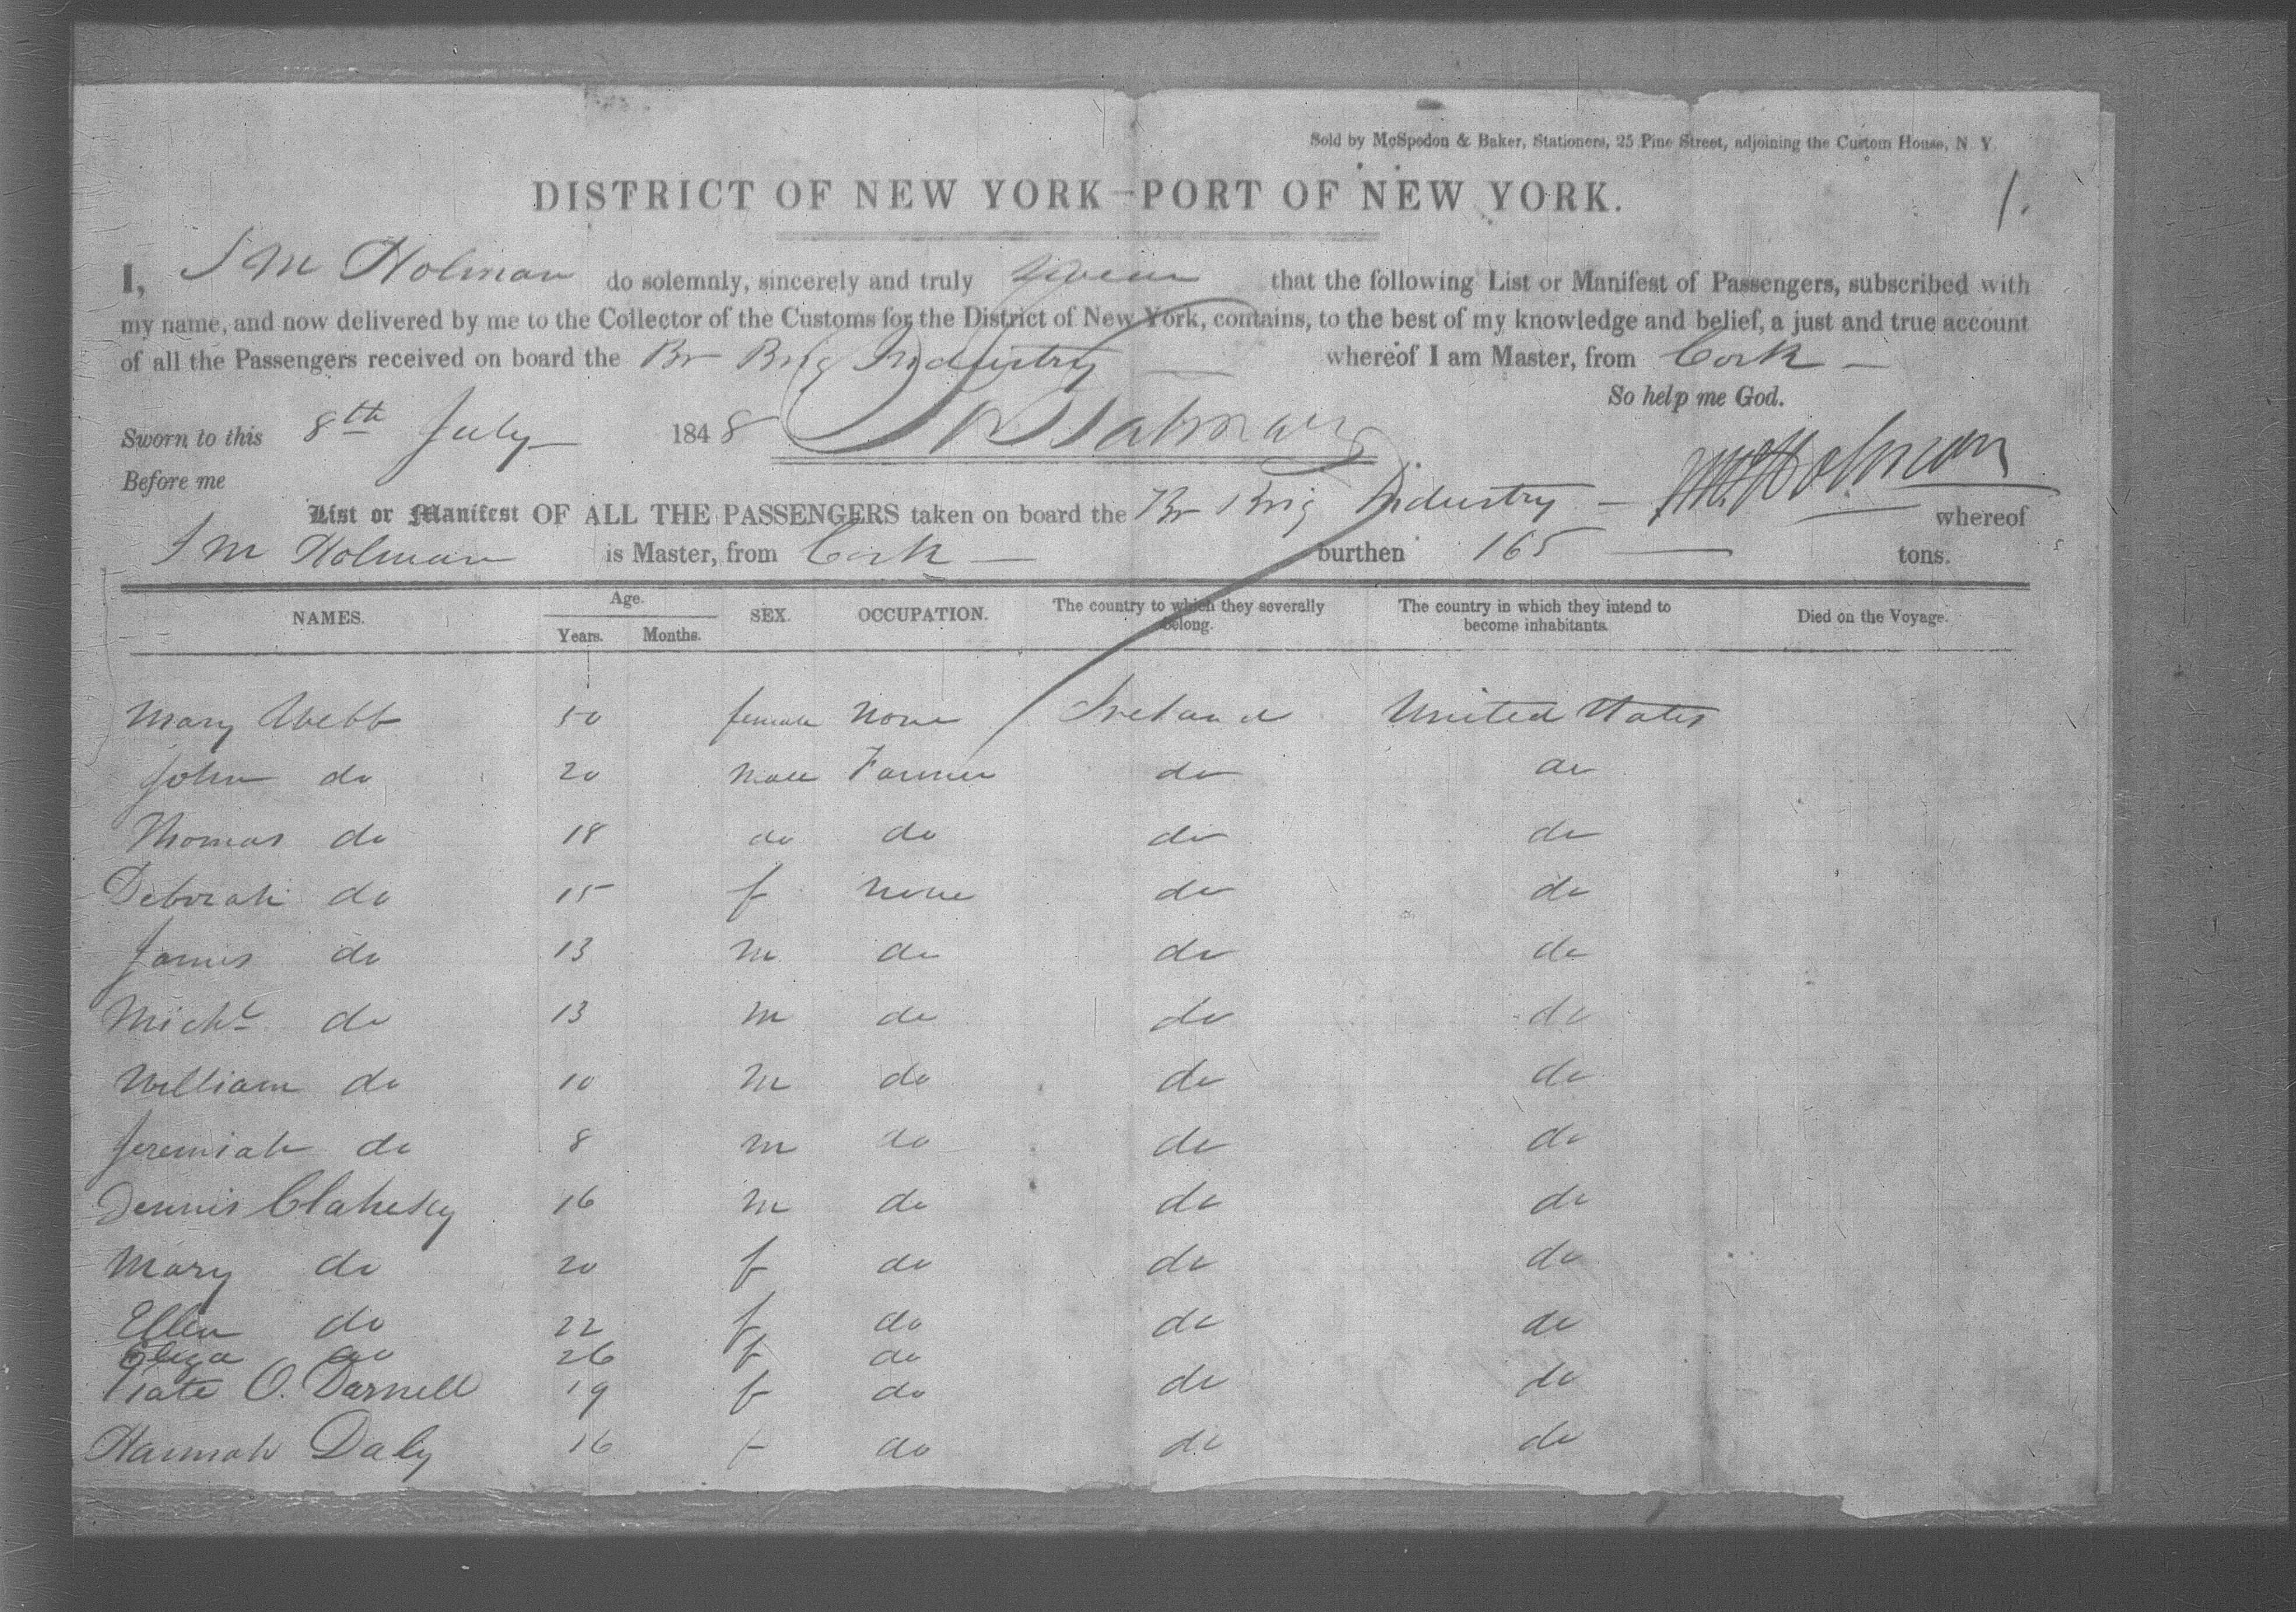 Sold by McSpedon & Baker, Stationers, 25 Pine Street, adjoining the Custom House, N. Y.
1.
DISTRICT OF NEW YORK—PORT OF NEW YORK.
I, J M Holman do solemnly, sincerely and truly swear that the following List or Manifest of Passengers, subscribed with
my name, and now delivered by me to the Collector of the Customs for the District of New York, contains, to the best of my knowledge and belief, a just and true account
of all the Passengers received on board the Br Brig Industry whereof I am Master, from Cork
So help me God.
Sworn to this 8th July 1848
J M Holman
Before me
List or Manifest OF ALL THE PASSENGERS taken on board the Br Brig Industry whereof
J M Holman is Master, from Cork burthen 165 tons.
NAMES. Age. Years. Months. SEX. OCCUPATION. The country to which they severally belong. The country in which they intend to become inhabitants. Died on the Voyage.
Mary Webb 50 female None Ireland United States
John do 20 Male Farmer do do
Thomas do 18 do do do do
Deborah do 15 f none do do
James do 13 m do do do
Michl do 13 m do do do
William do 10 m do do do
Jeremiah do 8 m do do do
Dennis Clahesey 16 m do do do
Mary do 20 f do do do
Ellen do 22 f do do do
Eliza do 26 f do
Kate O. Darnell 19 f do do do
Hannah Daly 16 f do do do